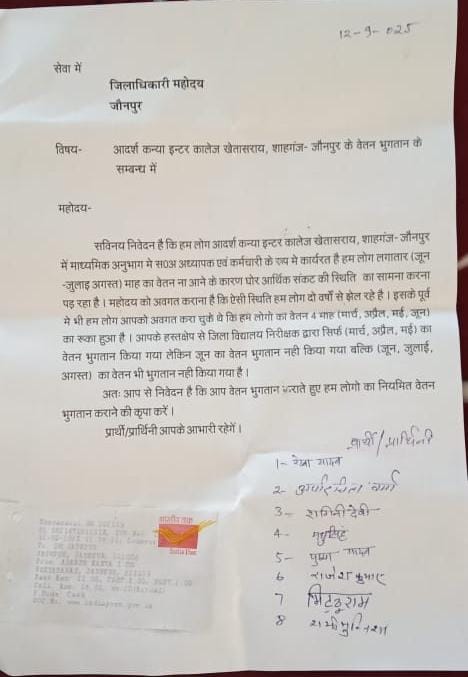 12-9-025
सेवा में
जिलाधिकारी महोदय
जौनपुर
विषय- आदर्श कन्या इन्टर कालेज खेतासराय, शाहगंज- जौनपुर के वेतन भुगतान के
सम्बन्ध में
महोदय-
सविनय निवेदन है कि हम लोग आदर्श कन्या इन्टर कालेज खेतासराय, शाहगंज- जौनपुर
में माध्यमिक अनुभाग मे स०अ अध्यापक एवं कर्मचारी के रूप मे कार्यरत है हम लोग लगातार (जून
-जुलाई अगस्त) माह का वेतन ना आने के कारण घोर आर्थिक संकट की स्थिति का सामना करना
पड़ रहा है। महोदय को अवगत कराना है कि ऐसी स्थिति हम लोग दो वर्षो से झेल रहे है। इसके पूर्व
मे भी हम लोग आपको अवगत करा चुके थे कि हमे लोगो का वेतन 4 माह (मार्च, अप्रैल, मई, जून)
का रूका हुआ है। आपके हस्तक्षेप से जिला विद्यालय निरीक्षक द्वारा सिर्फ (मार्च, अप्रैल, मई) का
वेतन भुगतान किया गया लेकिन जून का वेतन भुगतान नही किया गया बल्कि (जून, जुलाई,
अगस्त) का वेतन भी भुगतान नही किया गया है।
अतः आप से निवेदन है कि आप वेतन भुगतान कराते हुए हम लोगो का नियमित वेतन
भुगतान कराने की कृपा करें।
प्रार्थी/प्रार्थिनी आपके आभारी रहेगें।
प्रार्थी/प्रार्थिनी
1- रेखा यादव
2- वर्मा
3- रागिनी देवी
4- मधु सिंह
5- पुष्पा यादव
6 राजेश कुमार
7 मिट्ठू राम
8
भारतीय डाक
India Post